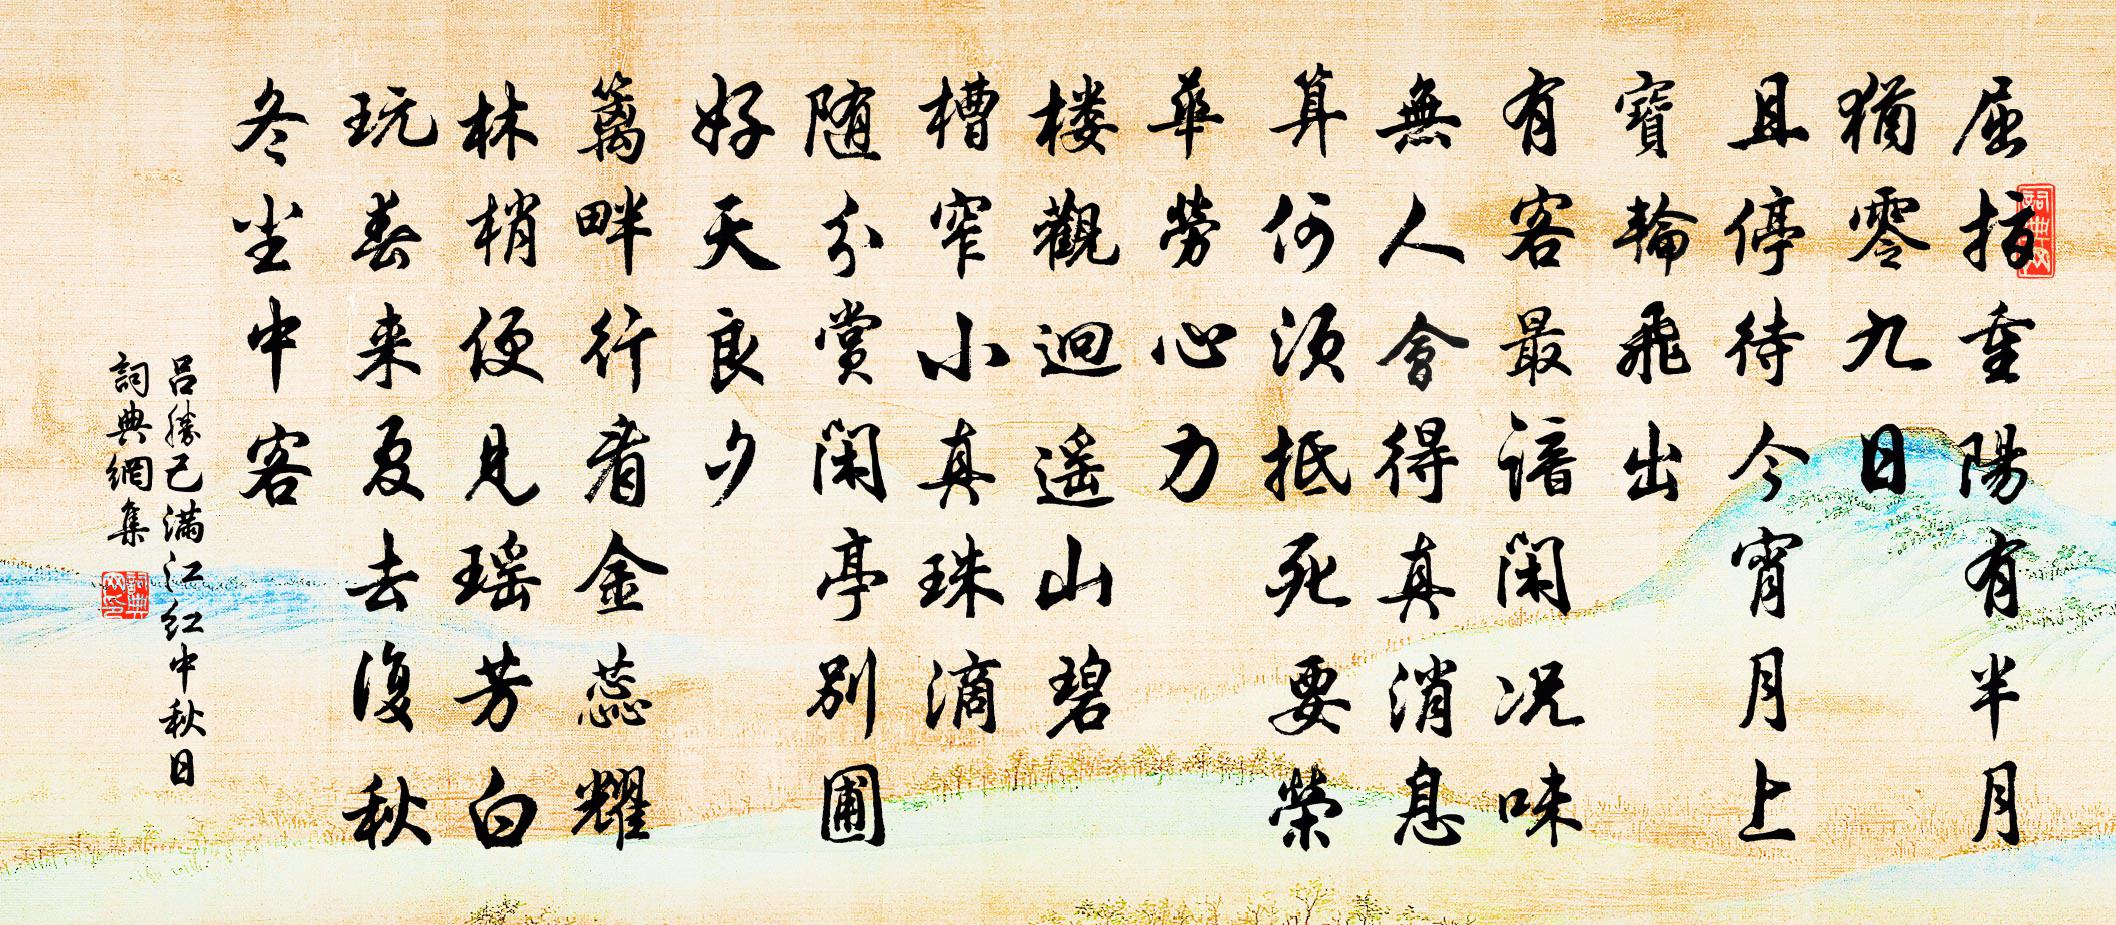 屈指重陽有半月
猶零九日
且停待今宵月上
寶輪飛出
有客最諳閑况味
無人會得真消息
算何須抵死要榮
華勞心力
楼觀迴遥山碧
槽窄小真珠滴
随分賞閑亭別圃
好天良夕
籬畔行看金蕊耀
林梢便見瑶芳白
玩春来夏去復秋
冬坐中客
吕勝己满江红中秋日
詞典網集